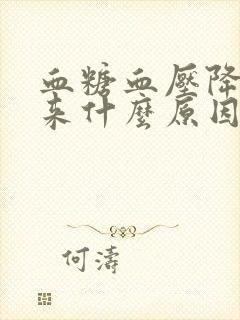 血糖血壓降
來什麼原因
何濤